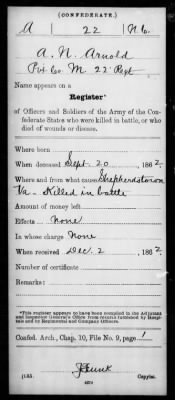 (CONFEDERATE.)
A 22 N.C.
A. N. Arnold
Pvt Co. M. 22 Regt
Name appears on a
Register*
of Officers and Soldiers of the Army of the Con-
federate States who were killed in battle, or who
died of wounds or disease.
Where born
When deceased Sept. 20, 1862
Where and from what cause Shepherdstown
Va - Killed in battle
Amount of money left
Effects None
In whose charge None
When received Dec. 2, 1862
Number of certificate
Remarks:
*This register appears to have been compiled in the Adjutant
and Inspector General's Office from returns furnished by Hospi-
tals and by Regimental and Company Officers.
Confed. Arch., Chap. 10, File No. 9, page 1
(635) Copyist.